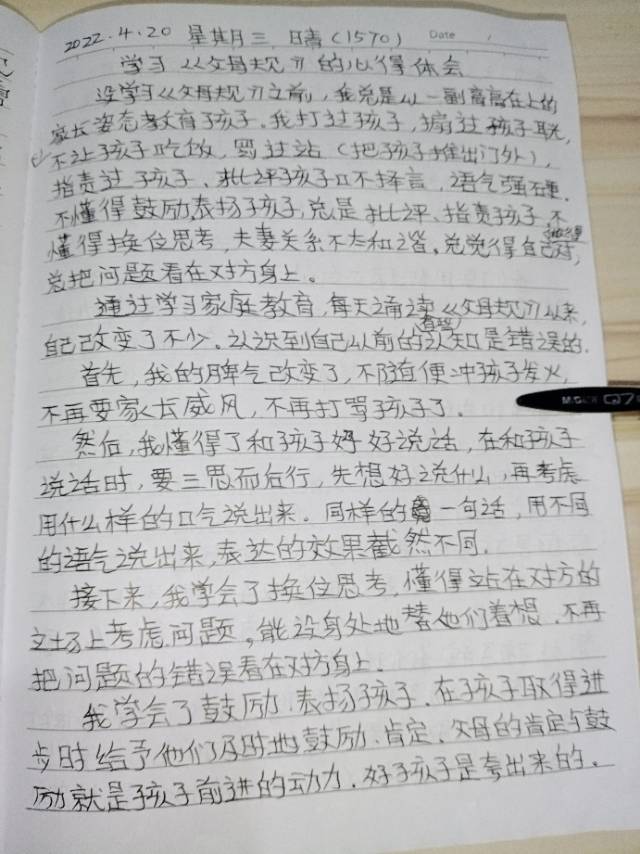 2022.4.20 星期三 晴(1570) Date
学习《父母规》的心得体会
没学习《父母规》之前，我总是以一副高高在上的
家长姿态教育孩子。我打过孩子，搧过孩子耿，
不让孩子吃饭，罚过站（把孩子推出门外），
指责过孩子、批评孩子口不择言，语气强硬.
不懂得鼓励表扬孩子，总是批评、指责孩子，不
懂得换位思考，夫妻关系不太和谐。总觉得自己对，
总把问题看在对方身上。
通过学习家庭教育，每天诵读《父母规》以来，
自己改变了不少。认识到自己以前的认知是错误的.
首先，我的脾气改变了，不随便冲孩子发火，
不再耍家长威风，不再打骂孩子了.
M&G Q7
然后，我懂得了和孩子好好说话，在和孩子
说话时，要三思而后行，先想好说什么，再考虑
用什么样的口气说出来。同样的一句话，用不同
的语气说出来，表达的效果截然不同.
接下来，我学会了换位思考，懂得站在对方的
立场上考虑问题，能设身处地替他们着想.不再
把问题的错误看在对方身上.
我学会了鼓励.表扬孩子.在孩子取得进
步时给予他们及时地鼓励.肯定.父母的肯定与鼓
励就是孩子前进的动力.好孩子是夸出来的.